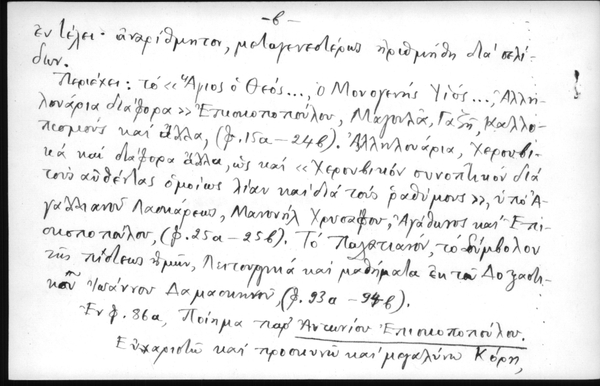 -6-
ἐν τέλει· ἀναρίθμητον, μεταγενεστέρως ἠριθμήθη διὰ σελί-
δων.
Περιέχει: τό «Ἅγιος ὁ Θεός..., ὁ Μονογενής Υἱός..., Ἀλλη-
λουάρια διάφορα» Ἐπισκοποπούλου, Μαγουλᾶ, Γαζῆ, καλλο-
πισμούς καί ἄλλα, (φ. 15α - 24β). Ἀλληλουάρια, χερουβι-
κά καί διάφορα ἄλλα, ὡς καί «Χερουβικόν συνοπτικόν διά
τούς αὐθέντας ὁμοίως λίαν καί διά τούς ῥαθύμους», ὑπό Ἀ-
γαλλιανοῦ Λασκάρεως, Μανουήλ Χρυσάφου, Ἀγάθωνος καί Ἐπι-
σκοποπούλου, (φ. 25α - 25β). Τό Παλατιανόν, τό Σύμβολον
τῆς πίστεως ἡμῶν, Λειτουργικά καί μαθήματα ἐκ τοῦ Δοξαστι-
κοῦ Ἰωάννου Δαμασκηνοῦ, (φ. 93α - 94β).
Ἐν φ. 86α, Ποίημα παρ' Ἀντωνίου Ἐπισκοποπούλου.
Εὐχαριστῶ καί προσκυνῶ καί μεγαλύνω Κόρη,